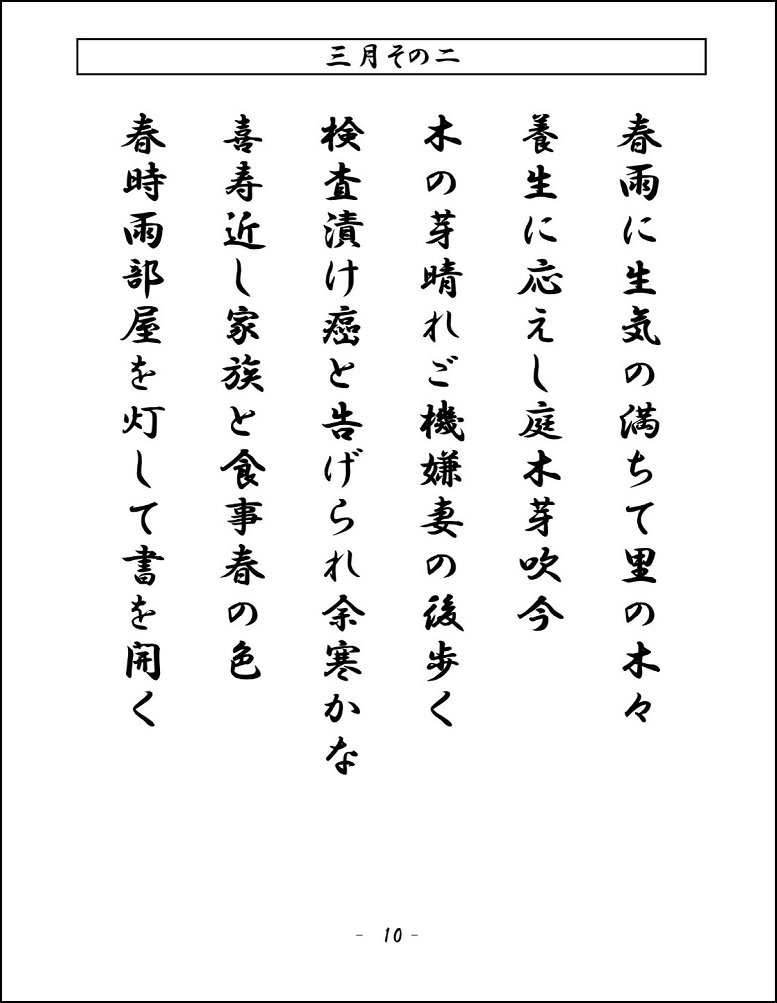 三月その二
春雨に生気の満ちて里の木々
養生に応えし庭木芽吹今
木の芽晴れご機嫌妻の後歩く
検査漬け癌と告げられ余寒かな
喜寿近し家族と食事春の色
春時雨部屋を灯して書を開く
- 10 -